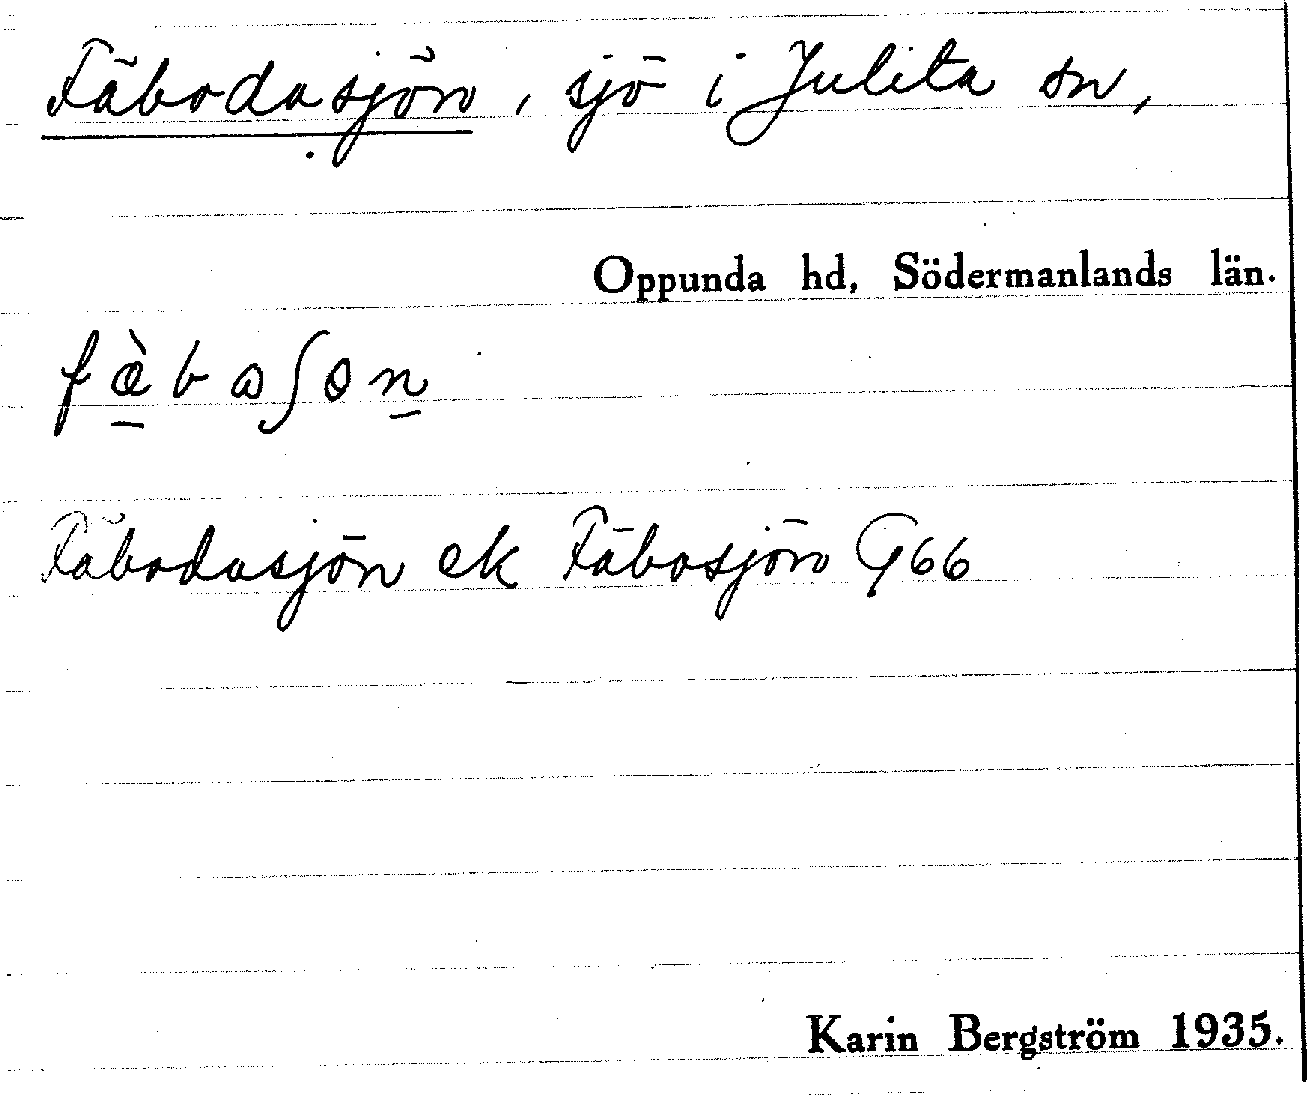 Fäbodasjön, sjö i Julita sn,
Oppunda hd, Södermanlands län.
Fäbodasjön ek Fäbosjön G66
Karin Bergström 1935.